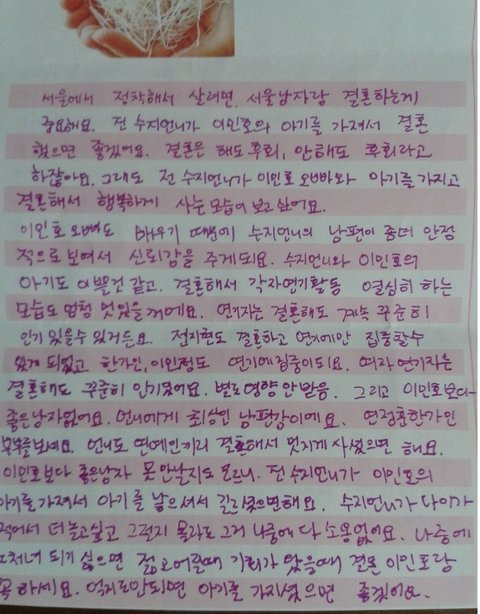 서울에서 정착해서 살려면 서울남자랑 결혼하는게
중요해요. 전 수지언니가 이민호의 아기를 가져서 결혼
했으면 좋겠어요. 결혼은 해도후회, 안해도 후회라고
하잖아요. 그래도 전 수지언니가 이민호 오빠와 아기를 가지고
결혼해서 행복하게 사는모습이 보고싶어요.
이민호 오빠도 배우기 때문에 수지언니의 남편이 좀더 안정
적으로보여서 신뢰감을 주게되요. 수지언니와 이민호의
아기도 이쁠것 같고. 결혼해서 각자연기활동 열심히 하는
모습도 엄청 멋있을꺼에요. 연기자는 결혼해도 계속 꾸준히
인기 있을수 있거든요. 전지현도 결혼하고 연기에만 집중할수
있게 되었고 한가인, 이민정도 연기에집중이되요. 여자 연기자는
결혼해도 꾸준히 인기있어요. 별로영향안받음. 그리고 이민호보다
좋은남자없어요. 언니에게 최상인 남편감이에요. 연정훈한가인
부부를보세요. 언니도 연예인끼리 결혼해서 멋지게 사셨으면 해요.
이민호보다 좋은남자 못만날지도 모르니. 전 수지언니가 이민호의
아기를 가져서 아기를 낳으셔서 길르셨으면해요. 수지언니가 나이가
적어서 더놀고싶고 그런지 몰라도 그거 나중에 다 소용없어요. 나중에
노처녀 되기 싫으면 젊고어릴때 기회가 왔을때 결혼 이민호랑
꼭 하세요. 되면 아기를 가지셨으면 좋겠어요.